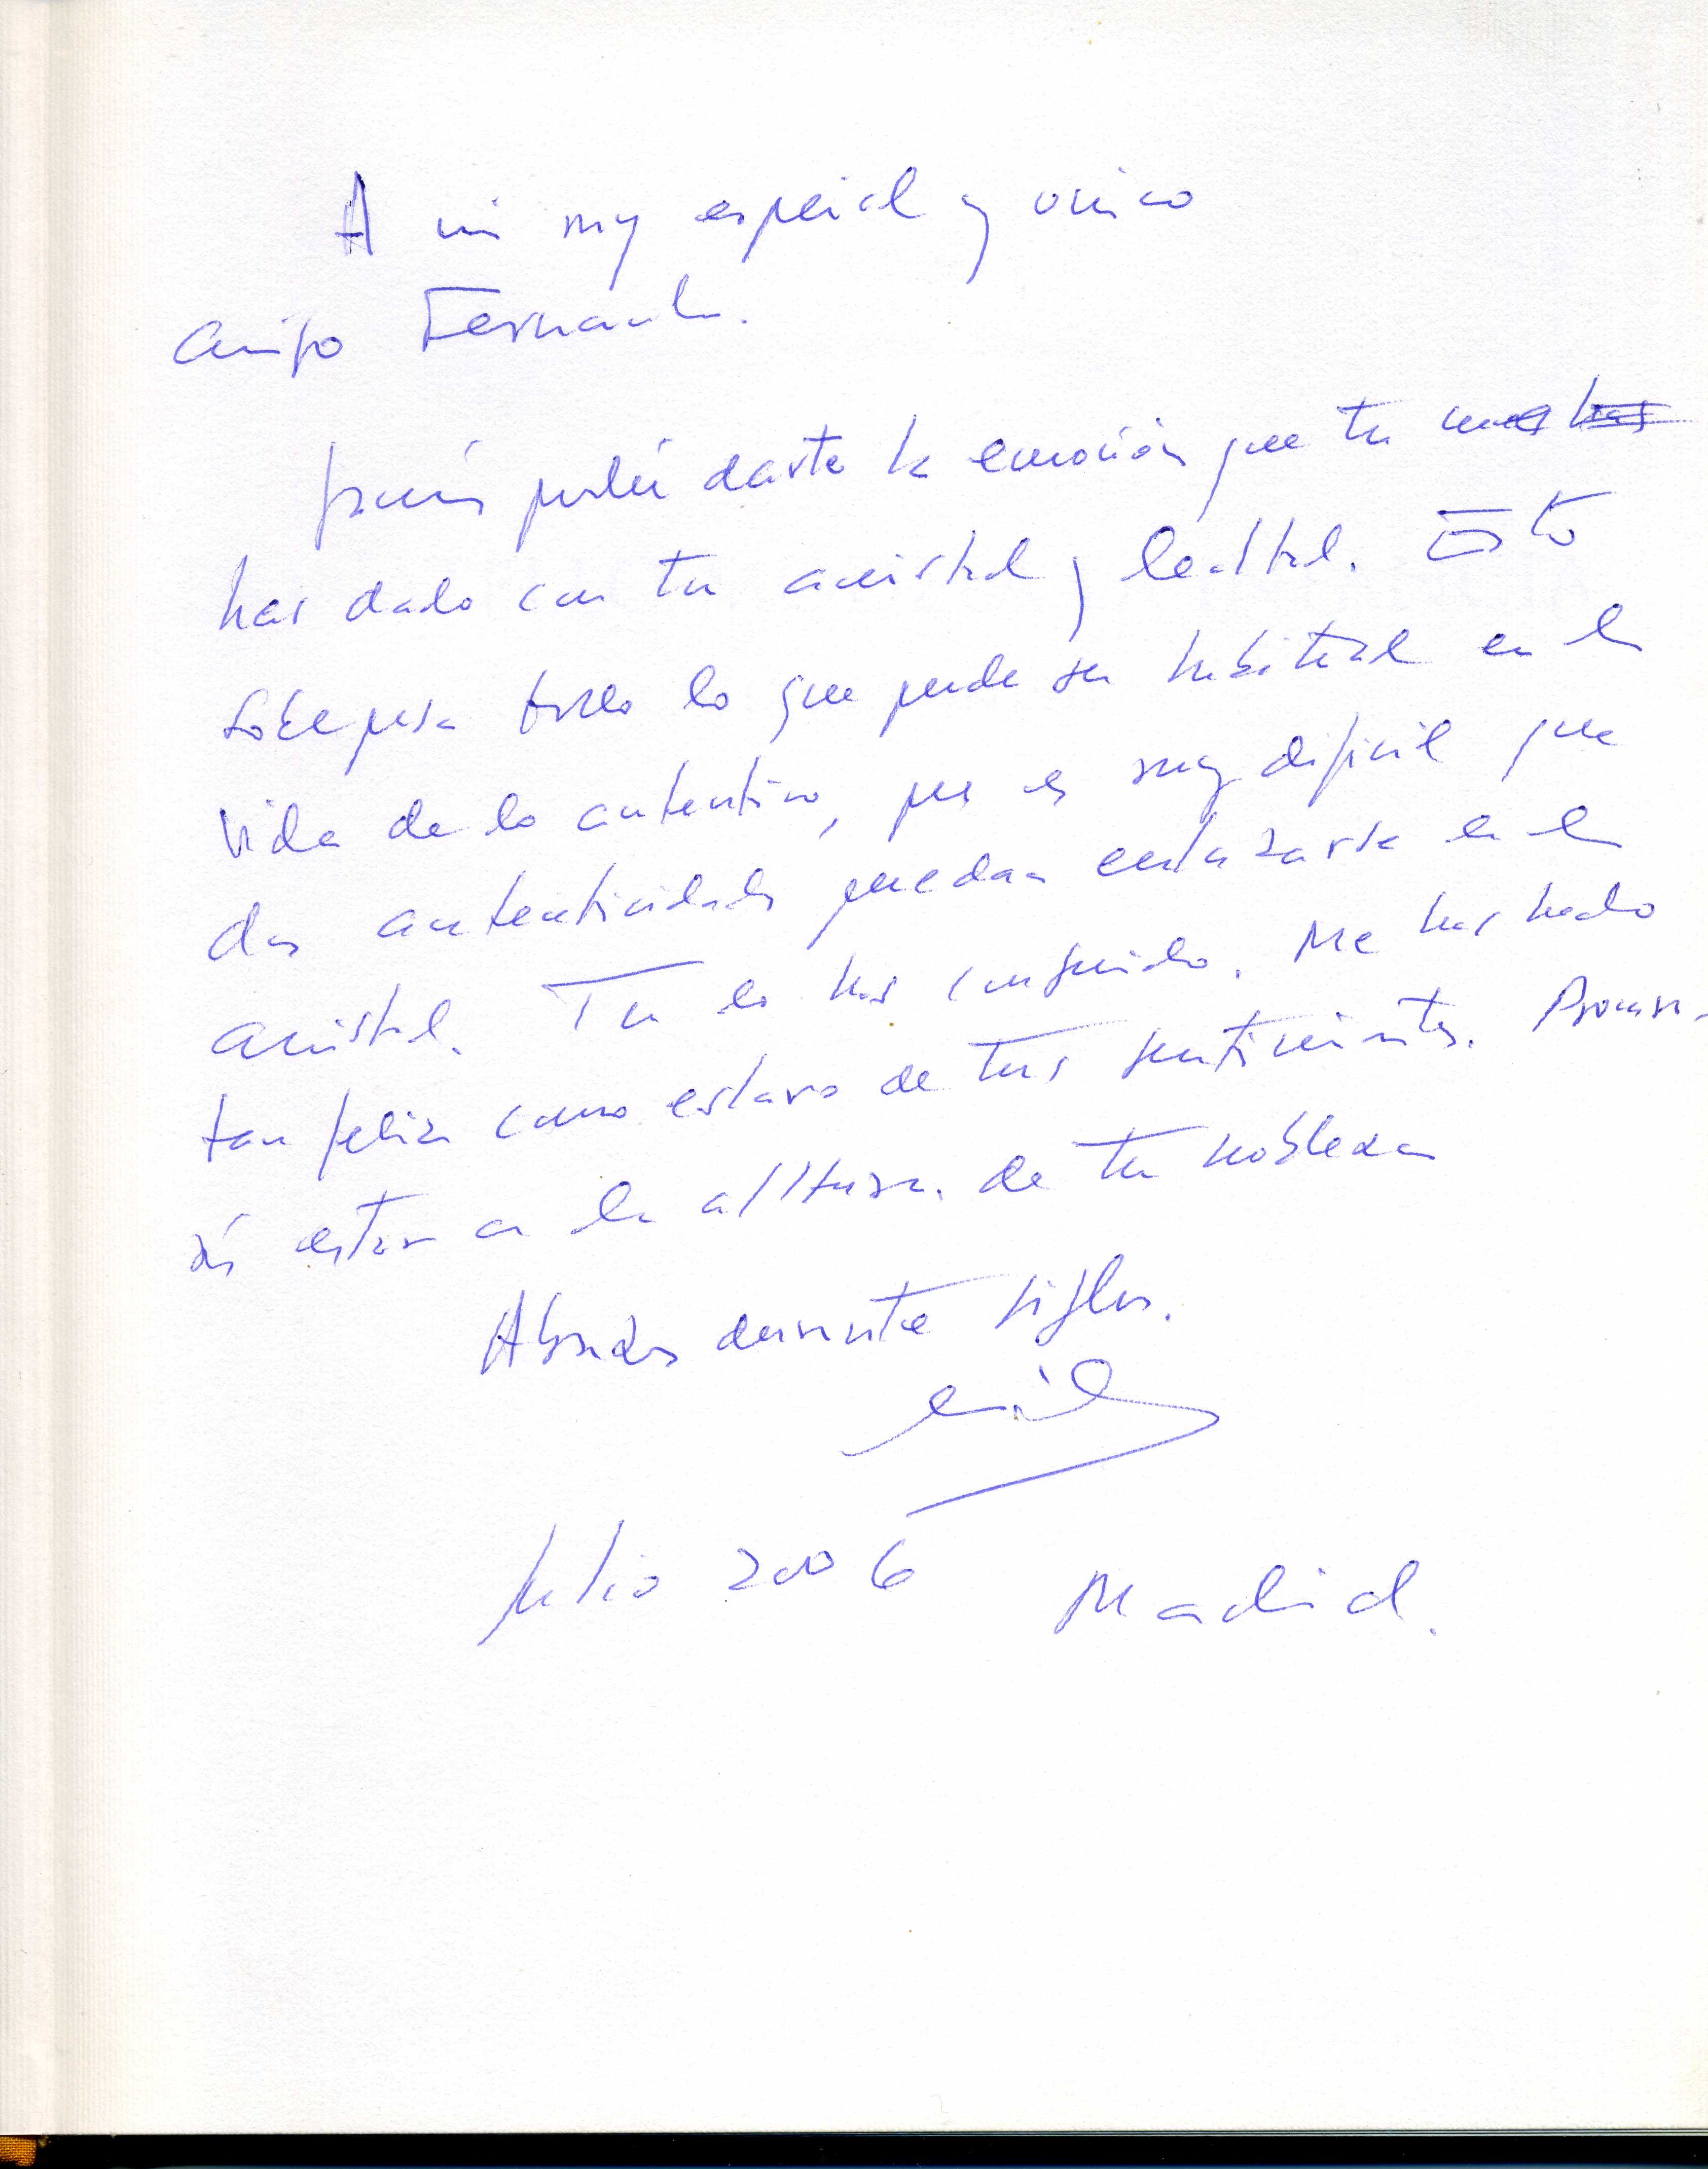 A mi muy especial y único
amigo Fernando.
Jamás podré darte la emoción que tu me has
has dado con tu amistad y lealtad. Esto
sobrepasa todo lo que puede ser habitual en la
vida de lo autentico, pues es muy dificil que
dos autenticidades puedan enlazarse en la
amistad. Tu lo has conseguido. Me has hecho
tan feliz como esclavo de tus sentimientos.
estar a la altura de tu nobleza
Abrazos durante siglos.
Julio 2006 Madrid.